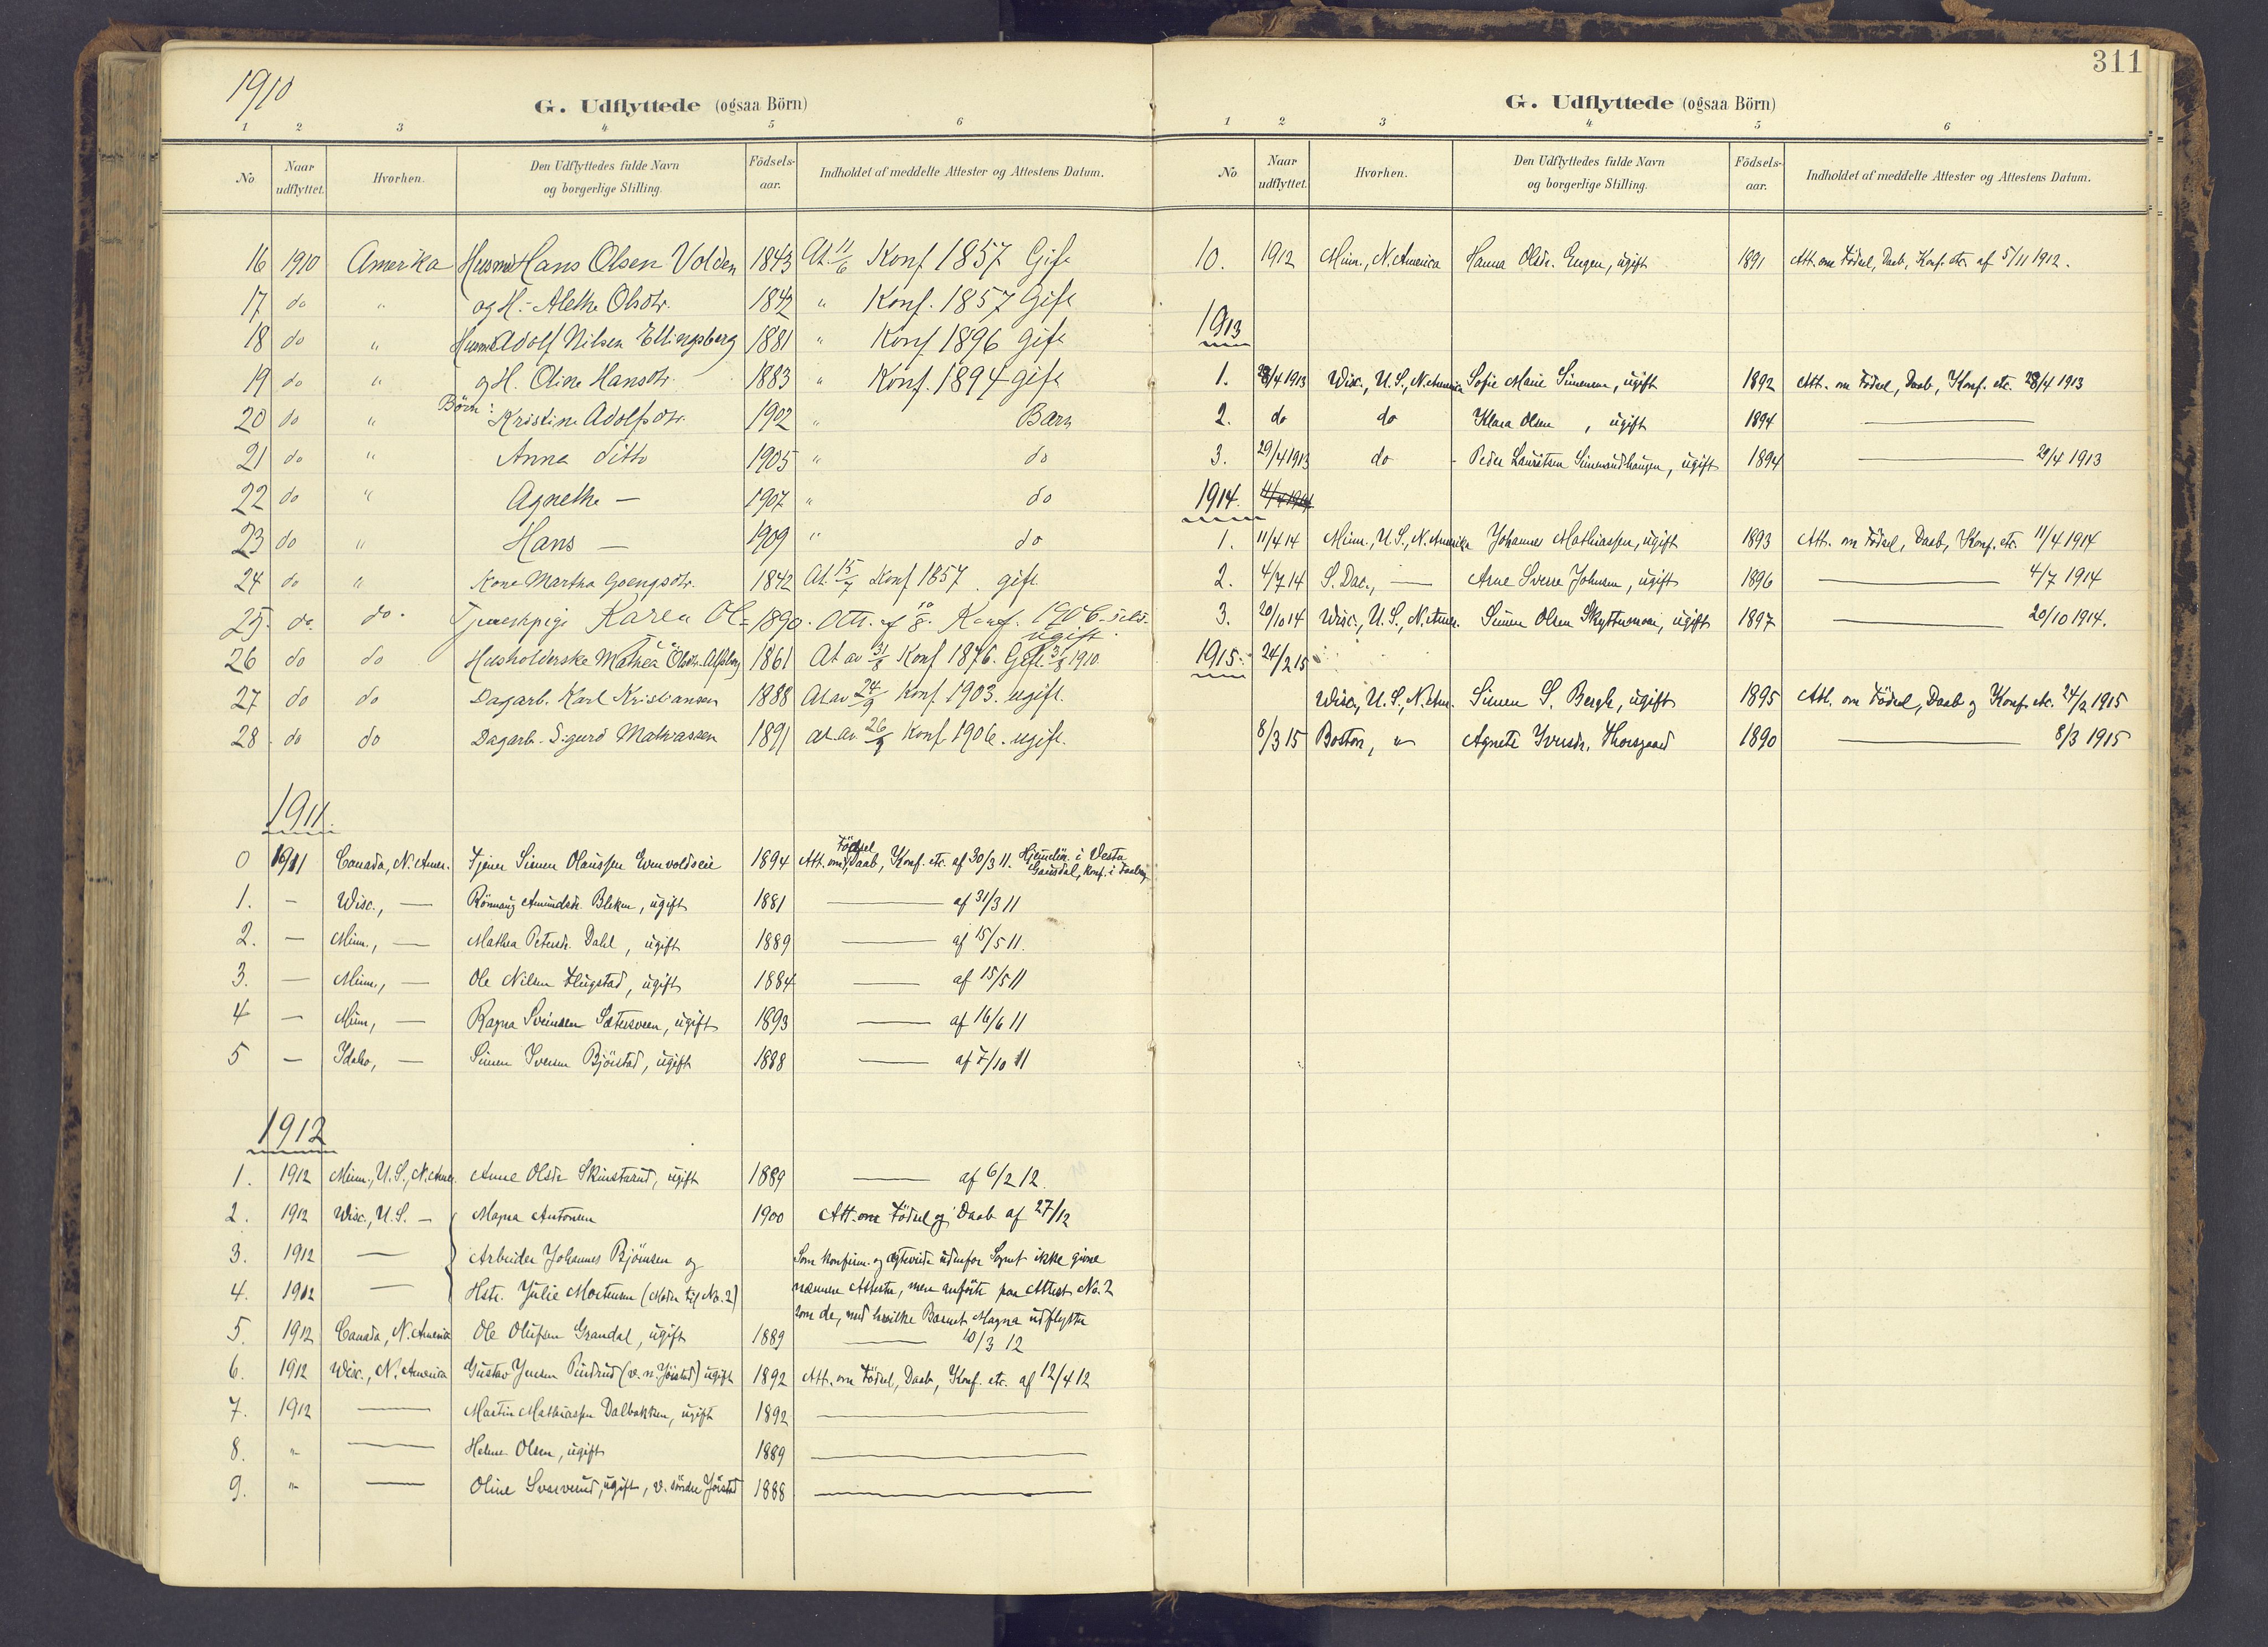 1910
G. Udflyttede (ogsaa Börn)
1 2 3 4 5 6
No Naar udflyttet. Hvorhen. Den Udflyttedes fulde Navn og borgerlige Stilling. Födsels-aar. Indholdet af meddelte Attester og Attestens Datum.
16 1910 Amerika Husmd Hans Olsen Volden 1843 At. 11/6 Konf 1857 Gift
17 do " og H. Alethe Olsdtr. 1842 " Konf. 1857 Gift
18 do " Husmd Adolf Nilsen Ellingsberg 1881 " Konf 1896 gift
19 do " og H. Oline Hansdtr. 1883 " Konf. 1894 gift
20 do " Börn: Kristine Adolfsdtr. 1902 " Barn
21 do " Anna ditto 1905 " do
22 do " Agnethe — 1907 " do
23 do " Hans — 1909 " do
24 do " Kone Martha 1842 At 15/7 Konf 1857. gift
25. do. do. Tjenestpige Karen Ol= 1890. Att. af 10/8. Konf. 1906 ugift.
26 do do Husholderske Mathea Olsdtr. 1861 At av 31/8 Konf 1876. Gift 31/8 1910
27 do do Dagarb. Karl Kristiansen 1888 At av 24/9 Konf. 1903. ugift.
28 do do Dagarb. Sigurd Mathiassen 1891 at av 26/9 Konf 1906. ugift.
1911.
0 1911 Canada, N. Amer. Tjener Simen Olaussen Evenvoldseie 1894 Att. om Födsel, Daab, Konf. etc. af 30/3 11. i Vestre Gausdal, Konf. i
1. — Wisc., — Rönnaug Amundsdr. Bleken, ugift 1881 — af 31/3 11
2. — Minn., — Mathea Petersdr. Dahl, ugift 1889 — af 15/5 11.
3. — Minn., — Ole Nilsen Flugstad, ugift 1884 — af 15/5 11
4 — Minn, — Ragna Svendsen Sætersveen, ugift 1893 — af 16/6 11
5 — Idaho, — Simen Iversen Bjöistad, ugift 1888 — af 7/10 11
1912
1. 1912 Minn., U.S., N. Amer. Anne Olsdr Skinstaand, ugift 1889 — af 6/2 12.
2. 1912 Wisc., U.S. — Magna Antonsen 1900 Att. om Födsel og Daab af 27/12
3. 1912 — Arbeider Johannes Björnsen og Som konfirm. og ægteviede udenfor Sognet ikke givne
4. 1912 — Hstr. Julie Mortensen (Moder til No. 2) nærmere Attester, men anförte paa Attest No. 2
som de, med hvilke Barnet Magna udflytter
5. 1912 Canada, N. America Ole Olufsen Grandal, ugift 1889 — 10/3 12
6. 1912 Wisc., N. America Gustav Jensen (v. n. Jöistad) ugift 1892 Att. om Födsel, Daab, Konf. etc. af 12/4 12
7. 1912 — Martin Mathiassen Dalbakken, ugift 1892 —
8. " — Helene Olsen, ugift 1889 —
9. " — Oline Svarverud, ugift, v. söndre Jöistad 1888 —
311
G. Udflyttede (ogsaa Börn)
1 2 3 4 5 6
No Naar udflyttet. Hvorhen. Den Udflyttedes fulde Navn og borgerlige Stilling. Födsels-aar. Indholdet af meddelte Attester og Attestens Datum.
10. 1912 Minn., N. America Hanna Olsdr. Engen, ugift 1891 Att. om Födsel, Daab, Konf. etc. af 5/11 1912.
1913
1. 28/4 1913 Wisc., U.S., N. America Sofie Marie Simensen, ugift 1892 Att. om Födsel, Daab, Konf. etc. 28/4 1913
2. do do Klara Olsen, ugift 1894 —
3. 29/4 1913 do - Peder Lauritsen Simensveen, ugift 1894 — 29/4 1913
1914. 11/4 1914
1. 11/4 14 Minn., U.S., N. Amerika Johannes Mathiassen, ugift 1893 Att. om Födsel, Daab, Konf. etc. 11/4 1914
2. 4/7 14 S. Dac., — Arne Sverre Johnsen, ugift 1896 — 4/7 1914
3. 20/10 14 Wisc., U.S., N. Amer. Simen Olsen Skyttermoen, ugift 1897 — 20/10 1914.
1915. 24/2 15
Wisc., U.S., N. Am. Simen S. Bergh, ugift 1895 Att. om Födsel, Daab og Konf. etc. 24/2 1915
8/3 15 Boston, " Agnete Iversdr. Thorsgaard 1890 — 8/3 1915